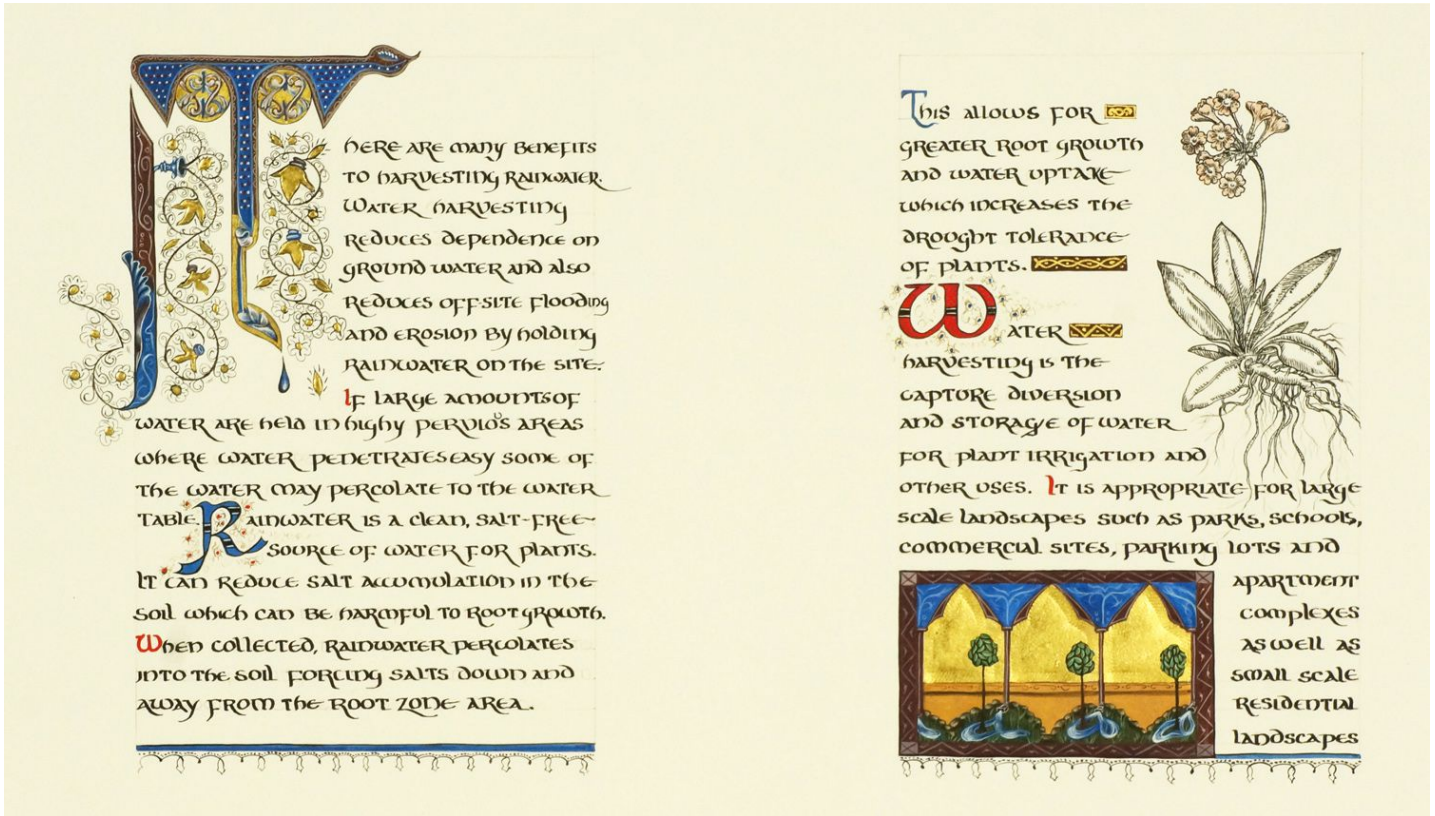 There are many benefits
to harvesting rainwater.
Water harvesting
reduces dependence on
ground water and also
reduces off-site flooding
and erosion by holding
rainwater on the site.
If large amounts of
water are held in highy pervios areas
where water penetrates easy some of
the water may percolate to the water
table. Rainwater is a clean, salt-free
source of water for plants.
It can reduce salt accumulation in the
soil which can be harmful to root growth.
When collected, rainwater percolates
into the soil forcing salts down and
away from the root zone area.
This allows for
greater root growth
and water uptake
which increases the
drought tolerance
of plants.
Water
harvesting is the
capture diversion
and storage of water
for plant irrigation and
other uses. It is appropriate for large
scale landscapes such as parks, schools,
commercial sites, parking lots and
apartment
complexes
as well as
small scale
residential
landscapes